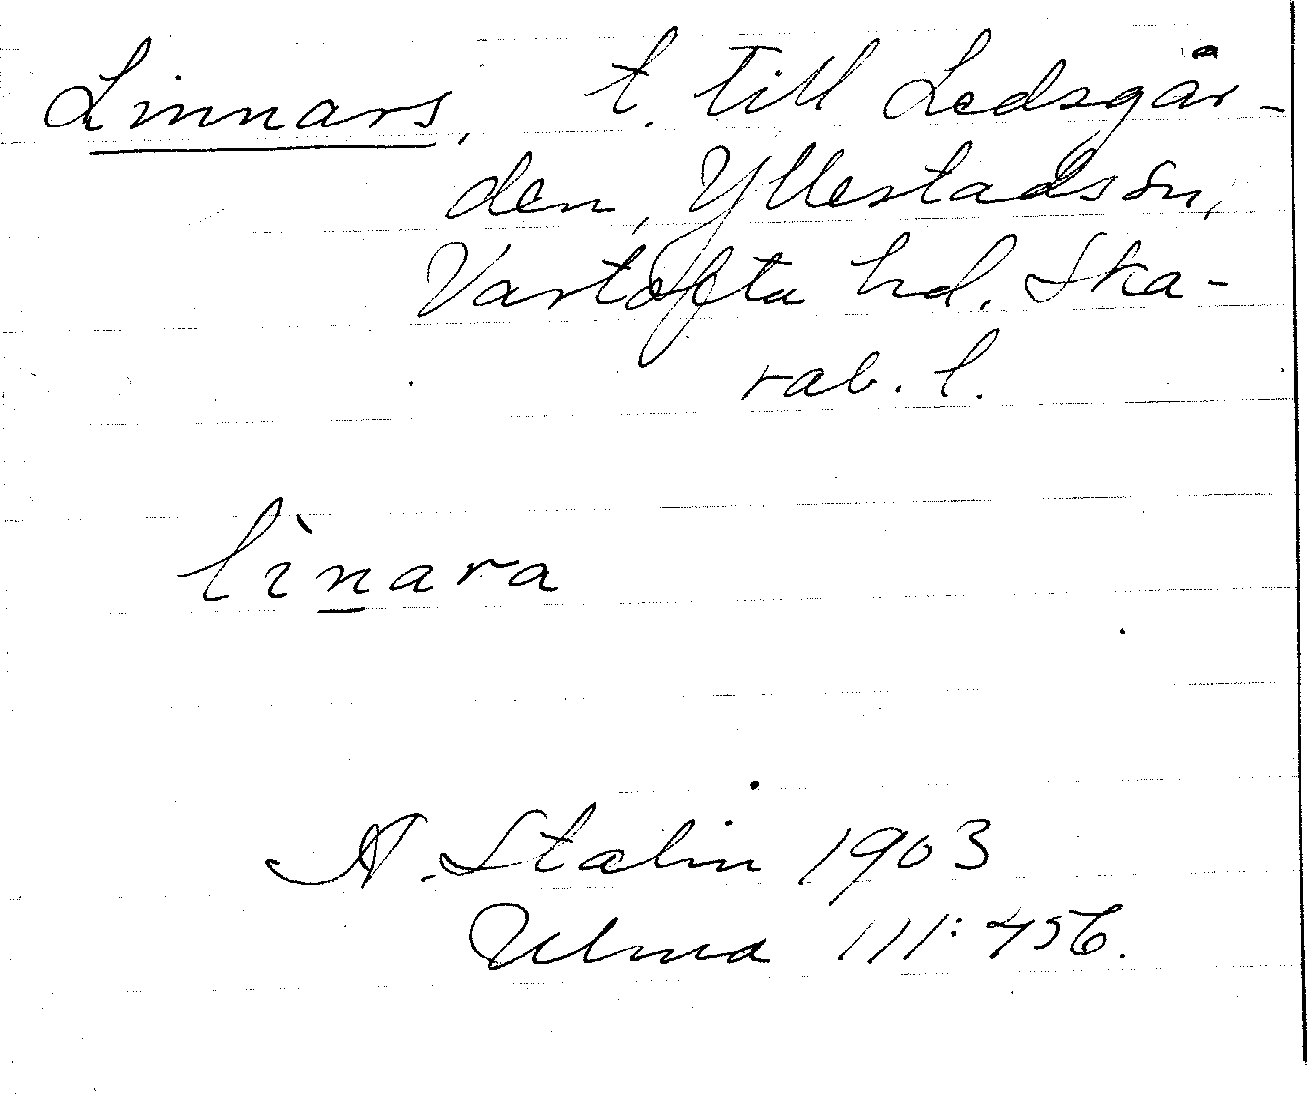 Linnars, t. till Ledsgår-
den, Yllestads sn,
Vartofta hd. Ska-
rab. l.
lìnara
A. Stalin 1903
Ulma 111:456.